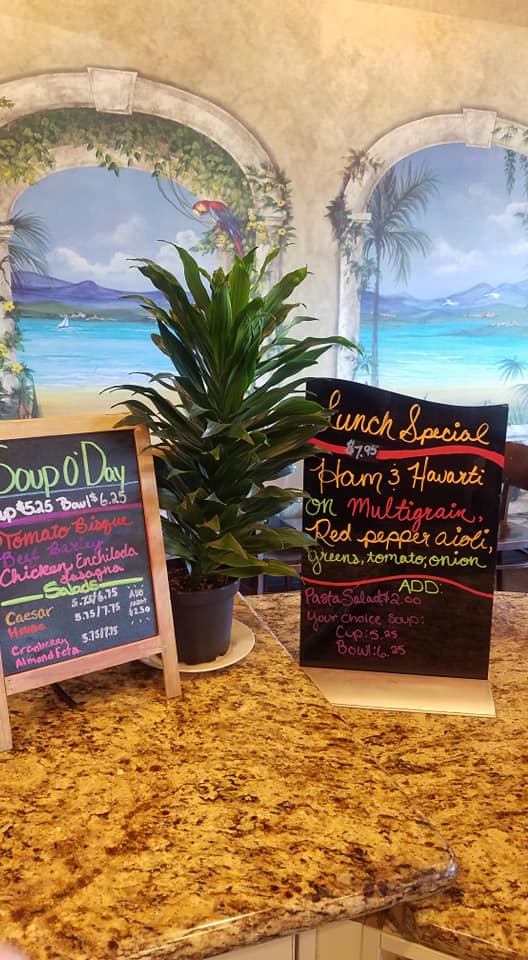 Soup O'Day
Cup $5.25 Bowl $6.25
Tomato Bisque
Beef Barley
Chicken Enchilada
Lasagna
Salads
Caesar 5.75/6.75
House 5.75/7.75
Cranberry 5.75/7.75
Almond Feta
Add
$2.50
Lunch Special
$7.95
Ham & Havarti
on Multigrain,
Red pepper aioli,
Greens, tomato, onion
ADD:
Pasta Salad $2.00
Your choice Soup:
Cup: 5.25
Bowl: 6.25